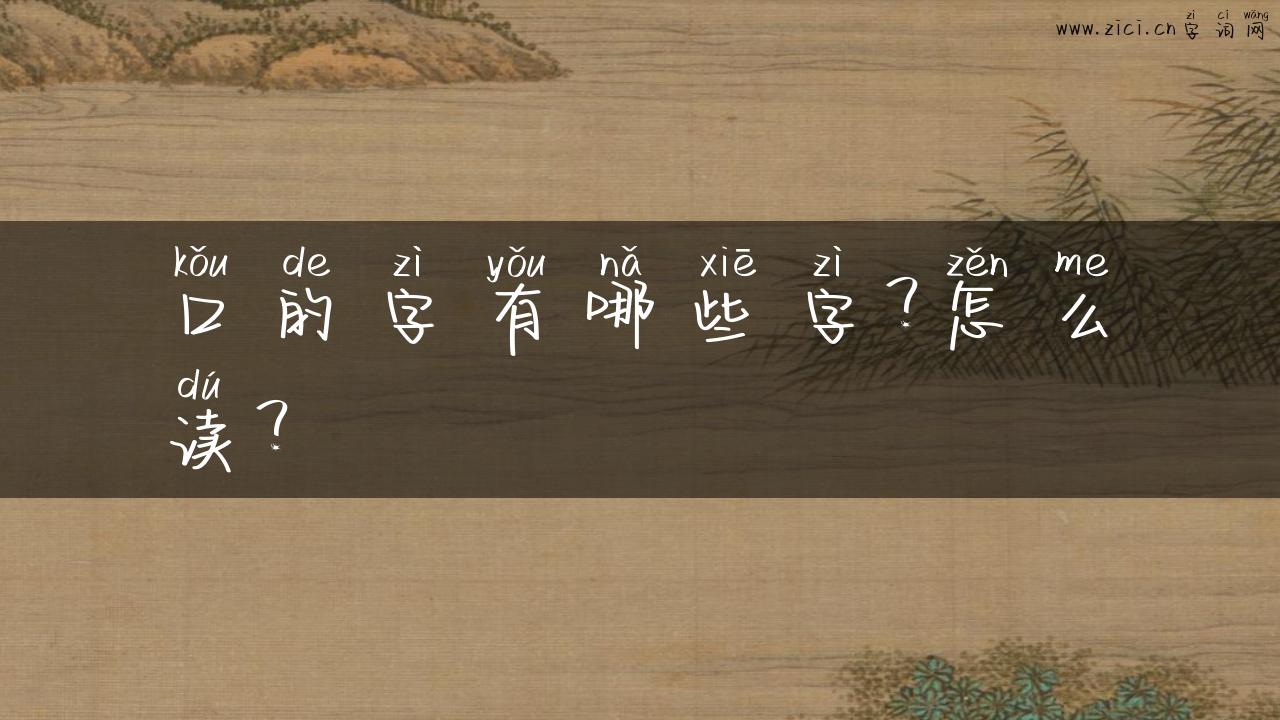 zì cí wǎng
www.zici.cn字词网
kǒu de zì yǒu nǎ xiē zì zěn me
口的字有哪些字?怎么
dú
读?